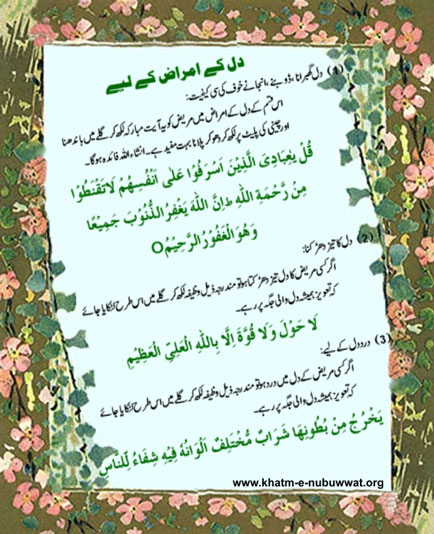 دل کے امراض کے لیے
(1) دل گھبرانا، ڈوبنے، انجانے خوف کی سی کیفیت:
اس قسم کے دل کے امراض میں مریض کو یہ آیت مبارکہ لکھ کر گلے میں باندھنا
اور چینی کی پلیٹ پر لکھ کر دھو کر پلانا بہت مفید ہے۔ انشاء اللہ فائدہ ہوگا۔
قُلْ يٰعِبَادِىَ الَّذِيْنَ اَسْرَفُوْا عَلٰى اَنْفُسِهِمْ لَا تَقْنَطُوْا
مِنْ رَّحْمَةِ اللهِ ط اِنَّ اللهَ يَغْفِرُ الذُّنُوْبَ جَمِيْعًا
وَهُوَ الْغَفُوْرُ الرَّحِيْمُ O
(2) دل کا تیز دھڑکنا:
اگر کسی مریض کا دل تیز دھڑکتا ہو تو مندرجہ ذیل وظیفہ لکھ کر گلے میں اس طرح لٹکایا جائے
کہ تعویز ہمیشہ دل والی جگہ پر رہے۔
لَا حَوْلَ وَلَا قُوَّةَ اِلَّا بِاللهِ الْعَلِيِّ الْعَظِيْمِ
(3) درد دل کے لیے:
اگر کسی مریض کے دل میں درد ہو تو مندرجہ ذیل وظیفہ لکھ کر گلے میں اس طرح لٹکایا جائے
کہ تعویز ہمیشہ دل والی جگہ پر رہے۔
يَخْرُجُ مِنْ بُطُوْنِهَا شَرَابٌ مُّخْتَلِفٌ اَلْوَانُهٗ فِيْهِ شِفَاءٌ لِّلنَّاسِ
www.khatm-e-nubuwwat.org